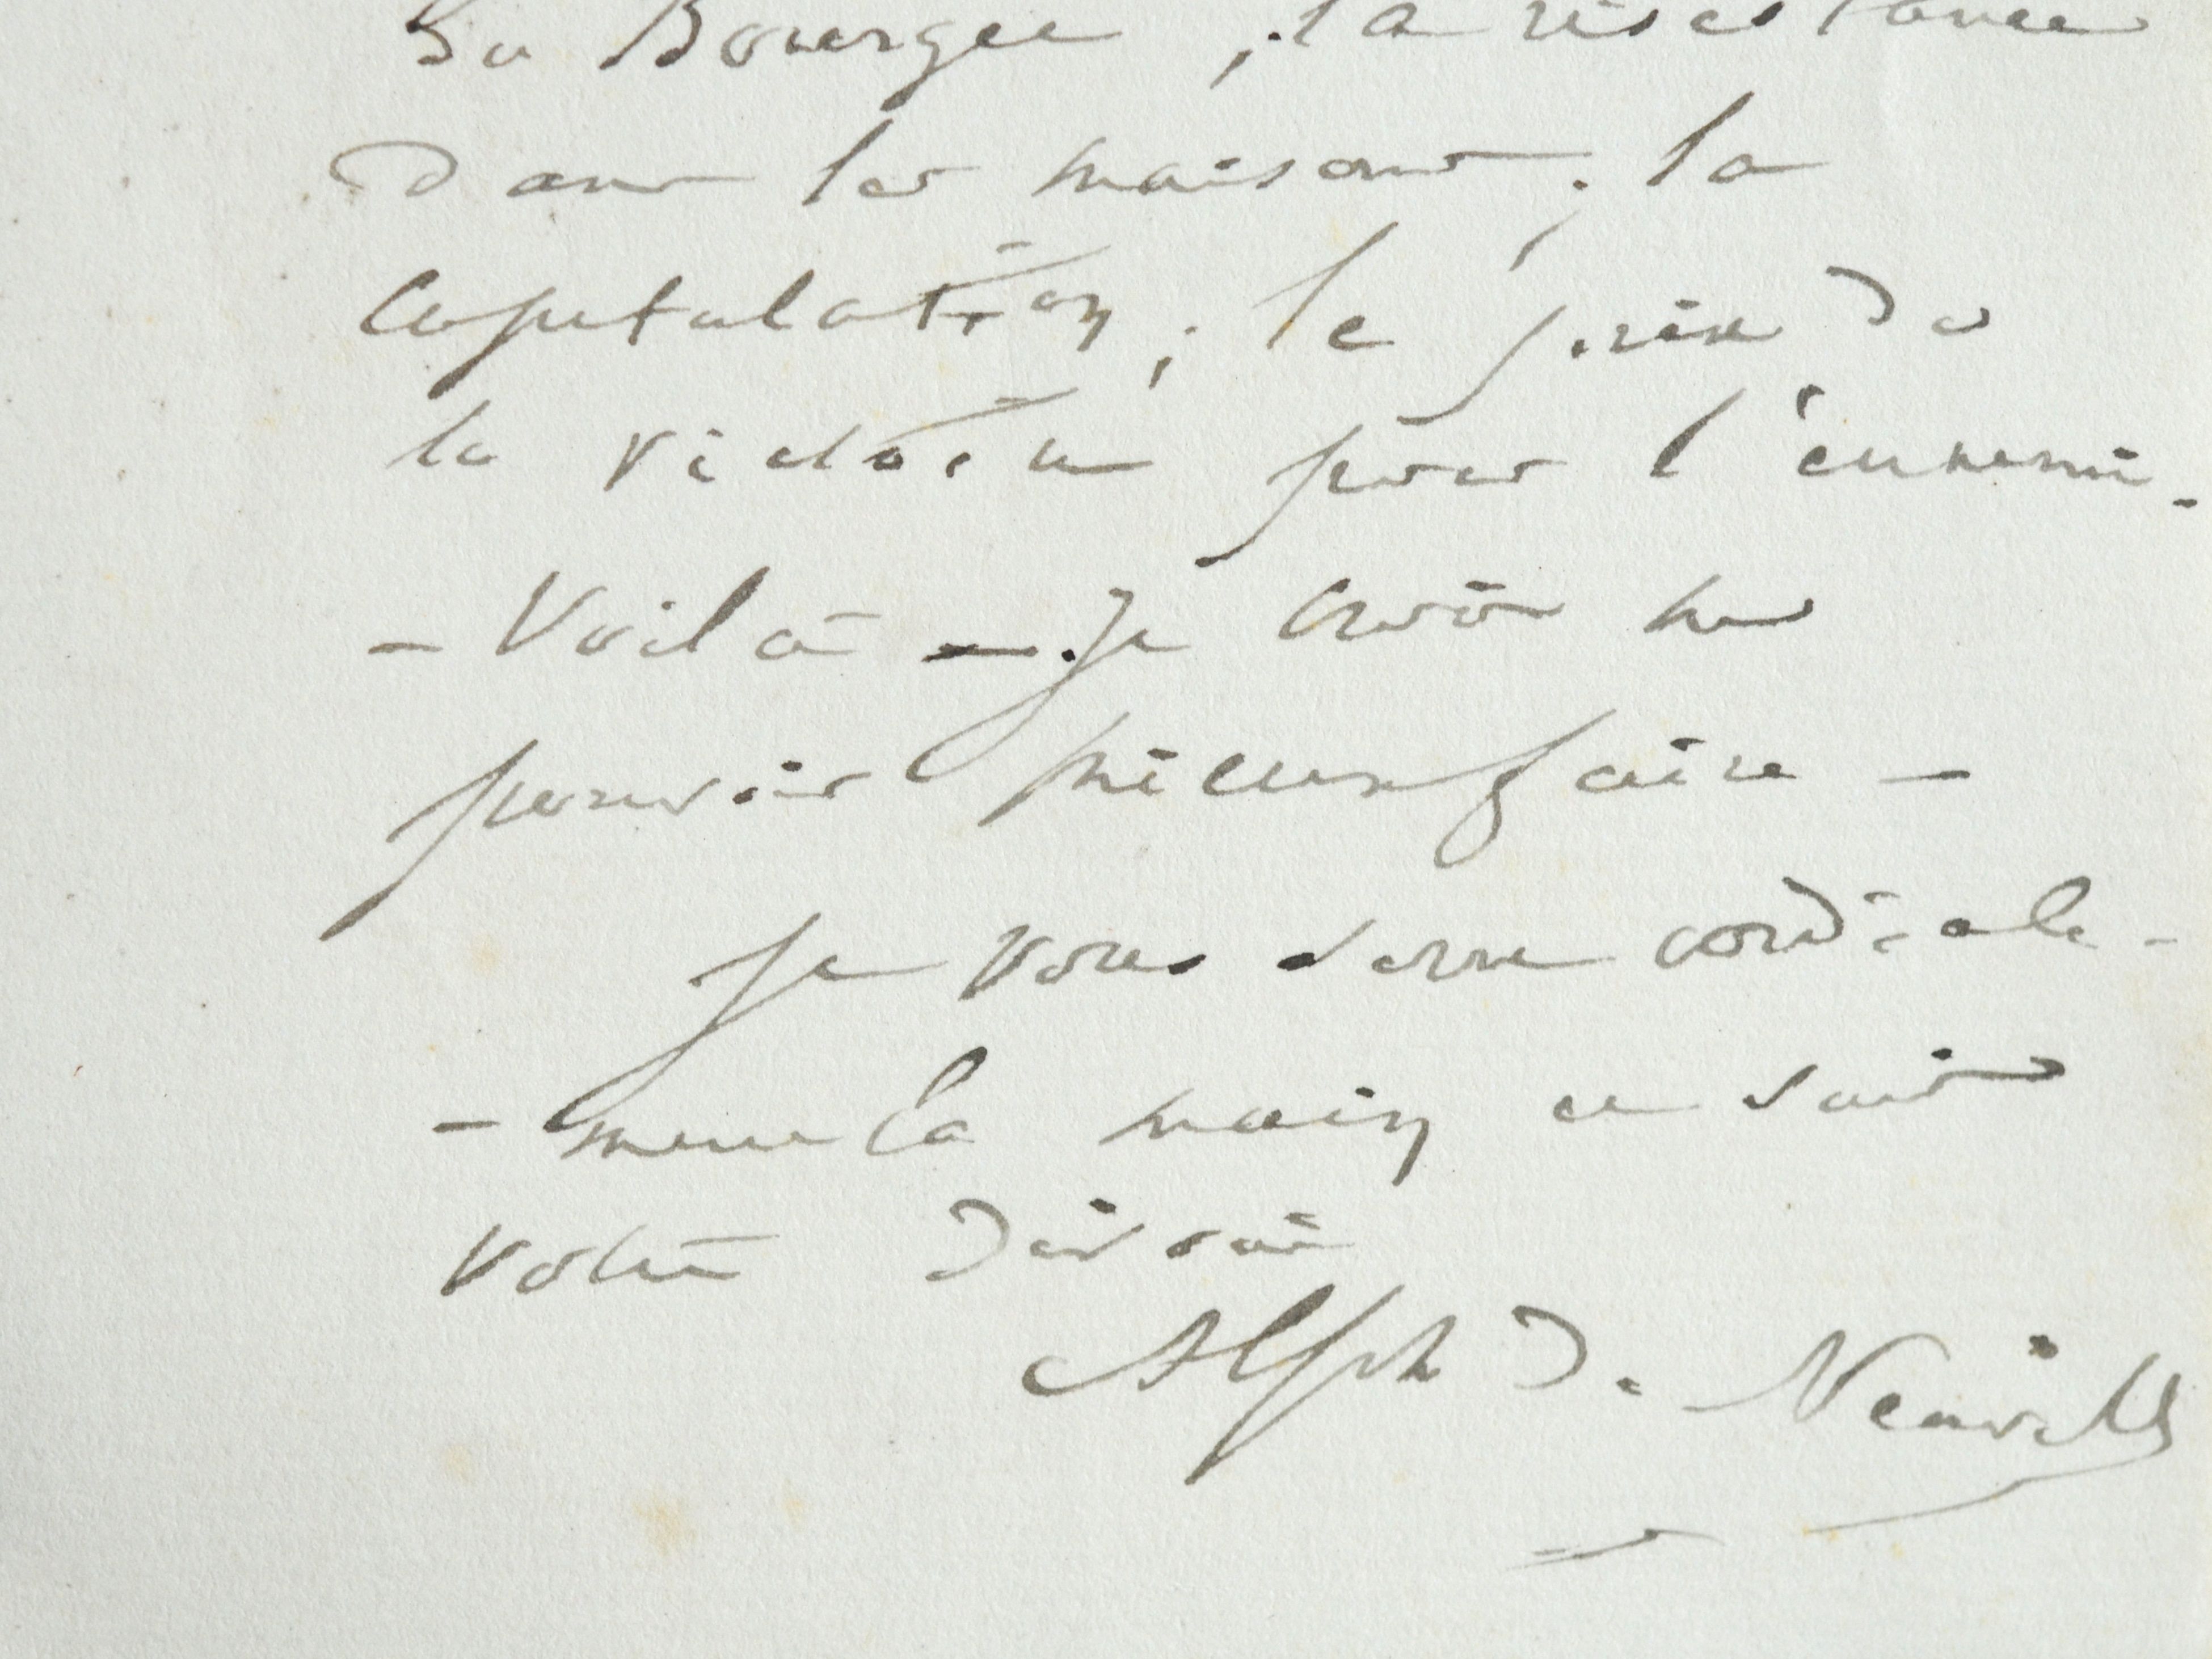 Du Bourget ; la résistance
dans les maisons ; la
Capitulation ; le prix de
la victoire pour l'ennemi.
- Voilà - Je crois ne
pouvoir mieux faire -
Je vous serre cordiale-
-ment la main et suis
votre dévoué
Alph de Neuville